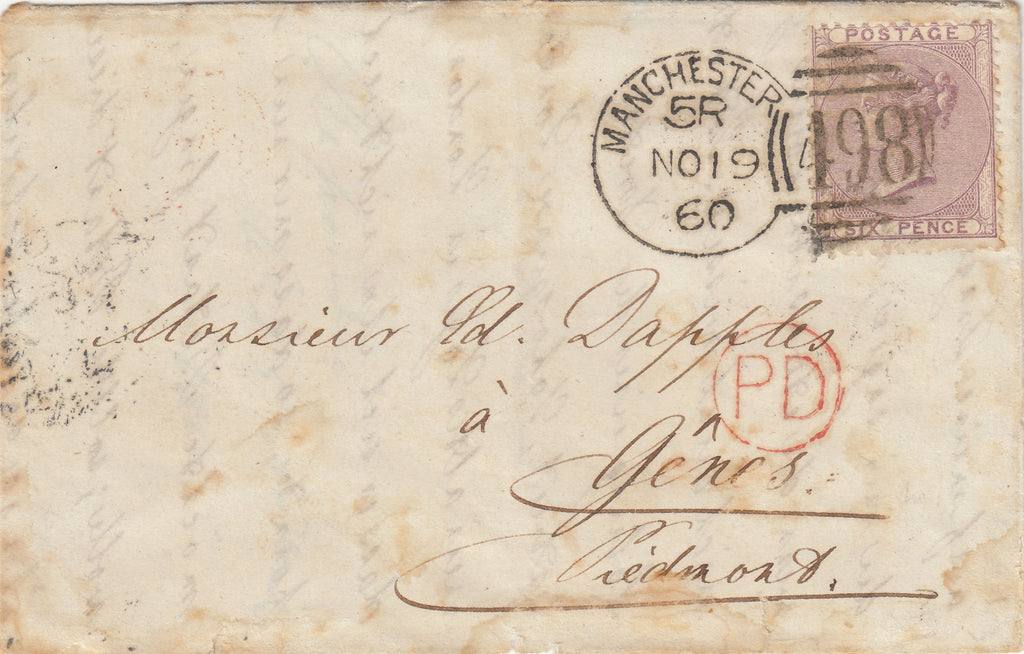 POSTAGE
MANCHESTER
5R
NO 19
60
498
SIX PENCE
Monsieur Ed. Dapples
PD
à
Gênes.
Piédmont.